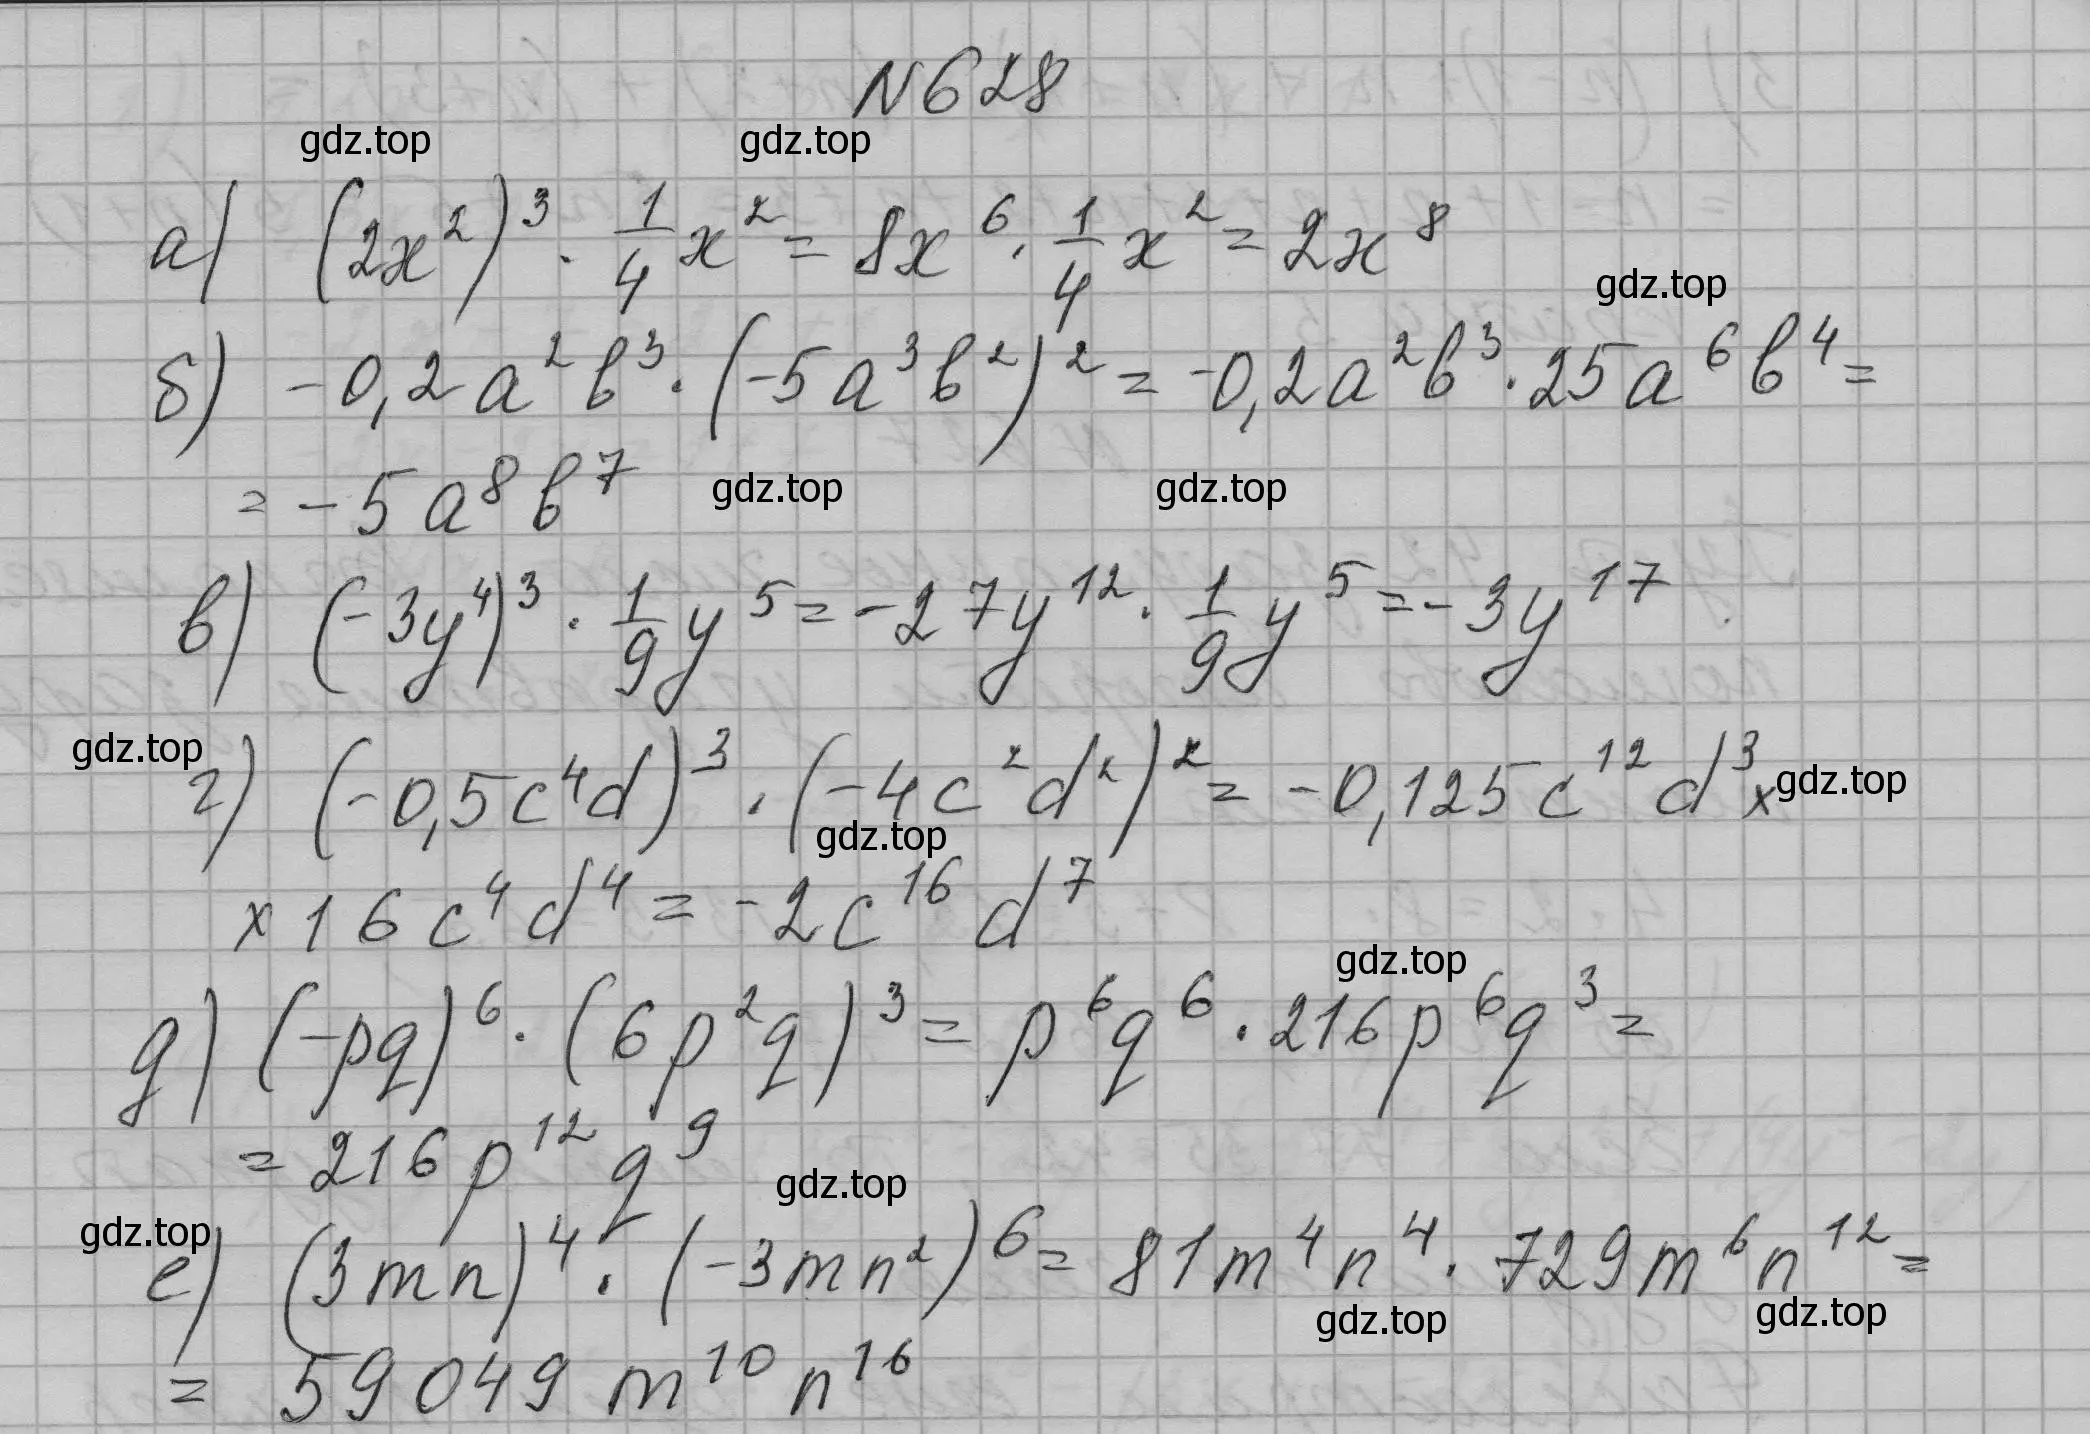 N628
gdz.top gdz.top
а) (2x²)³ · 1/4 x² = 8x⁶ · 1/4 x² = 2x⁸
gdz.top
б) -0,2a²b³ · (-5a³b²)² = -0,2a²b³ · 25a⁶b⁴ =
= -5a⁸b⁷
gdz.top gdz.top
в) (-3y⁴)³ · 1/9 y⁵ = -27y¹² · 1/9 y⁵ = -3y¹⁷
gdz.top
г) (-0,5c⁴d)³ · (-4c²d²)² = -0,125c¹²d³ ×
gdz.top
gdz.top
× 16c⁴d⁴ = -2c¹⁶d⁷
gdz.top
д) (-pq)⁶ · (6p²q)³ = p⁶q⁶ · 216p⁶q³ =
= 216p¹²q⁹
gdz.top
gdz.top
е) (3mn)⁴ · (-3mn²)⁶ = 81m⁴n⁴ · 729m⁶n¹² =
gdz.top gdz.top
= 59049m¹⁰n¹⁶